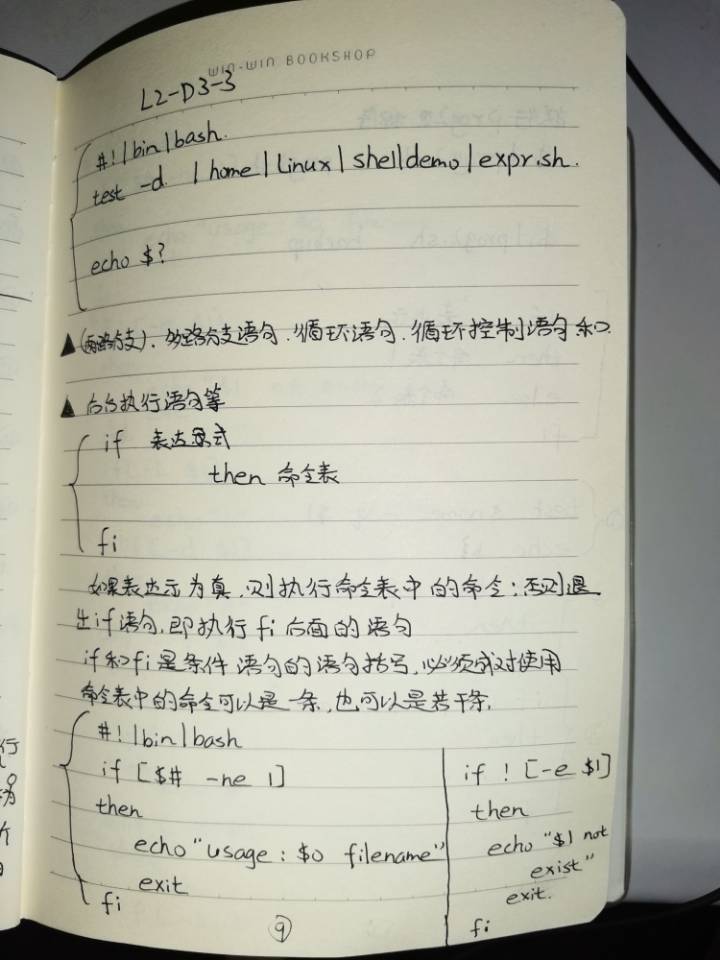 WIN-WIN BOOKSHOP
L2-D3-3
#!/bin/bash.
test -d /home/linux/shelldemo/expr.sh.
echo $?
▲(两路分支)、多路分支语句、循环语句、循环控制语句和
▲ 后台执行语句等
if 表达式
then 命令表
fi
如果表达示为真,则执行命令表中的命令;否则退
出if语句,即执行fi后面的语句
if和fi是条件语句的语句括号,必须成对使用
命令表中的命令可以是一条,也可以是若干条.
#!/bin/bash
if [$# -ne 1]
then
echo "usage: $0 filename"
exit
fi
if ! [-e $1]
then
echo "$1 not
exist"
exit.
fi
9